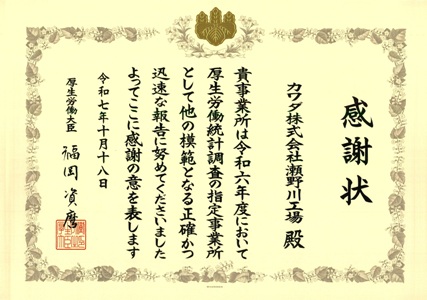 感謝状
カワダ株式会社瀬野川工場 殿
貴事業所は令和六年度において
厚生労働統計調査の指定事業所
として他の模範となる正確かつ
迅速な報告に努めてくださいました
よってここに感謝の意を表します
令和七年十月十八日
厚生労働大臣 福岡資麿